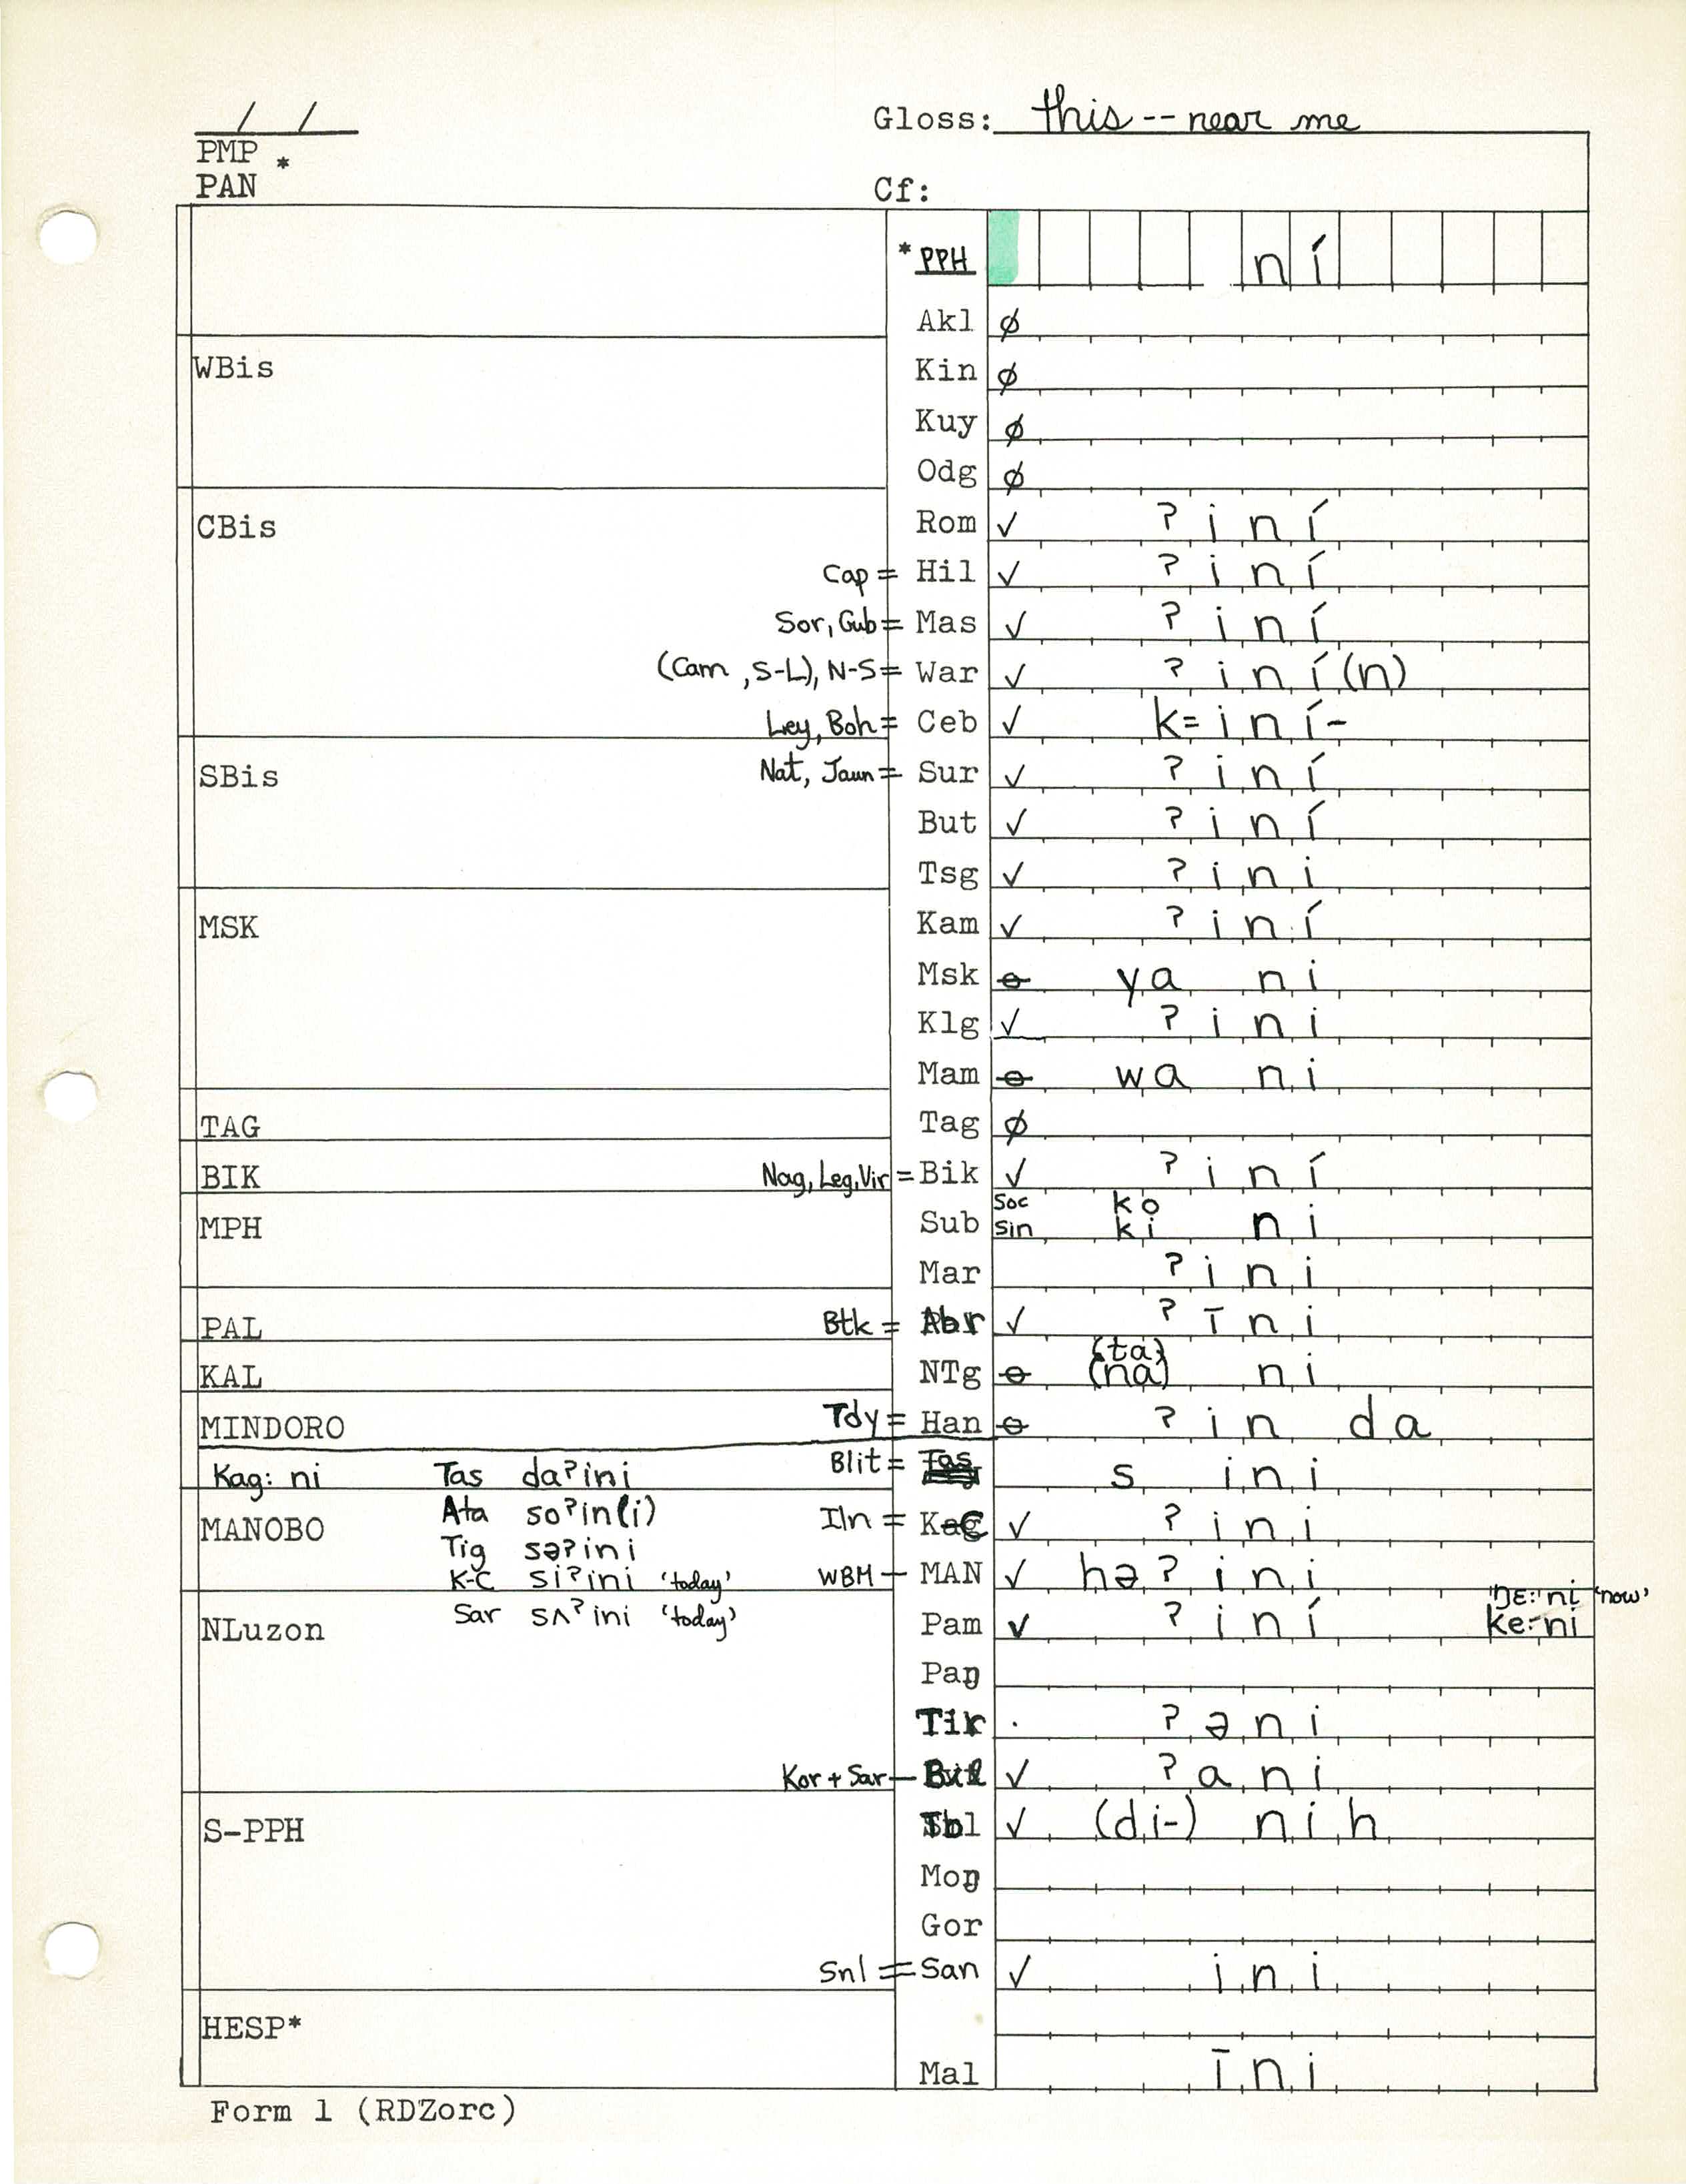 / /
Gloss: this -- near me
PMP *
PAN
Cf:
*PPH ní
Akl ø
WBis
Kin ø
Kuy ø
Odg ø
CBis
Rom ✓ ʔiní
Cap = Hil ✓ ʔiní
Sor, Gub = Mas ✓ ʔiní
(Cam, S-L), N-S = War ✓ ʔiní(n)
Ley, Boh = Ceb ✓ k=iní-
SBis
Nat, Jaun = Sur ✓ ʔiní
But ✓ ʔiní
Tsg ✓ ʔini
MSK
Kam ✓ ʔiní
Msk ɵ ya ni
Klg ✓ ʔini
Mam ɵ wa ni
TAG
Tag ø
BIK
Nag, Leg, Vir = Bik ✓ ʔiní
MPH
Sub soc ko
sin ki ni
Mar ʔini
PAL
Btk = Abr ✓ ʔīni
KAL
NTg ɵ {ta}
(na) ni
MINDORO
Tdy = Han ɵ ʔin da
Kag: ni Tas daʔini
Blit = s ini
MANOBO
Ata soʔin(i)
Iln = ✓ ʔini
Tig səʔini
K-C siʔini 'today'
WBM — MAN ✓ həʔini
NLuzon
Sar sʌʔini 'today'
Pam ✓ ʔiní
ŋɛ:ni 'now'
ke:ni
Paŋ
Tir · ʔəni
Kor + Sar — Bil ✓ ʔani
S-PPH
Tbl ✓ (di-) nih
Moŋ
Gor
Snl = San ✓ ini
HESP*
Mal īni
Form 1 (RDZorc)